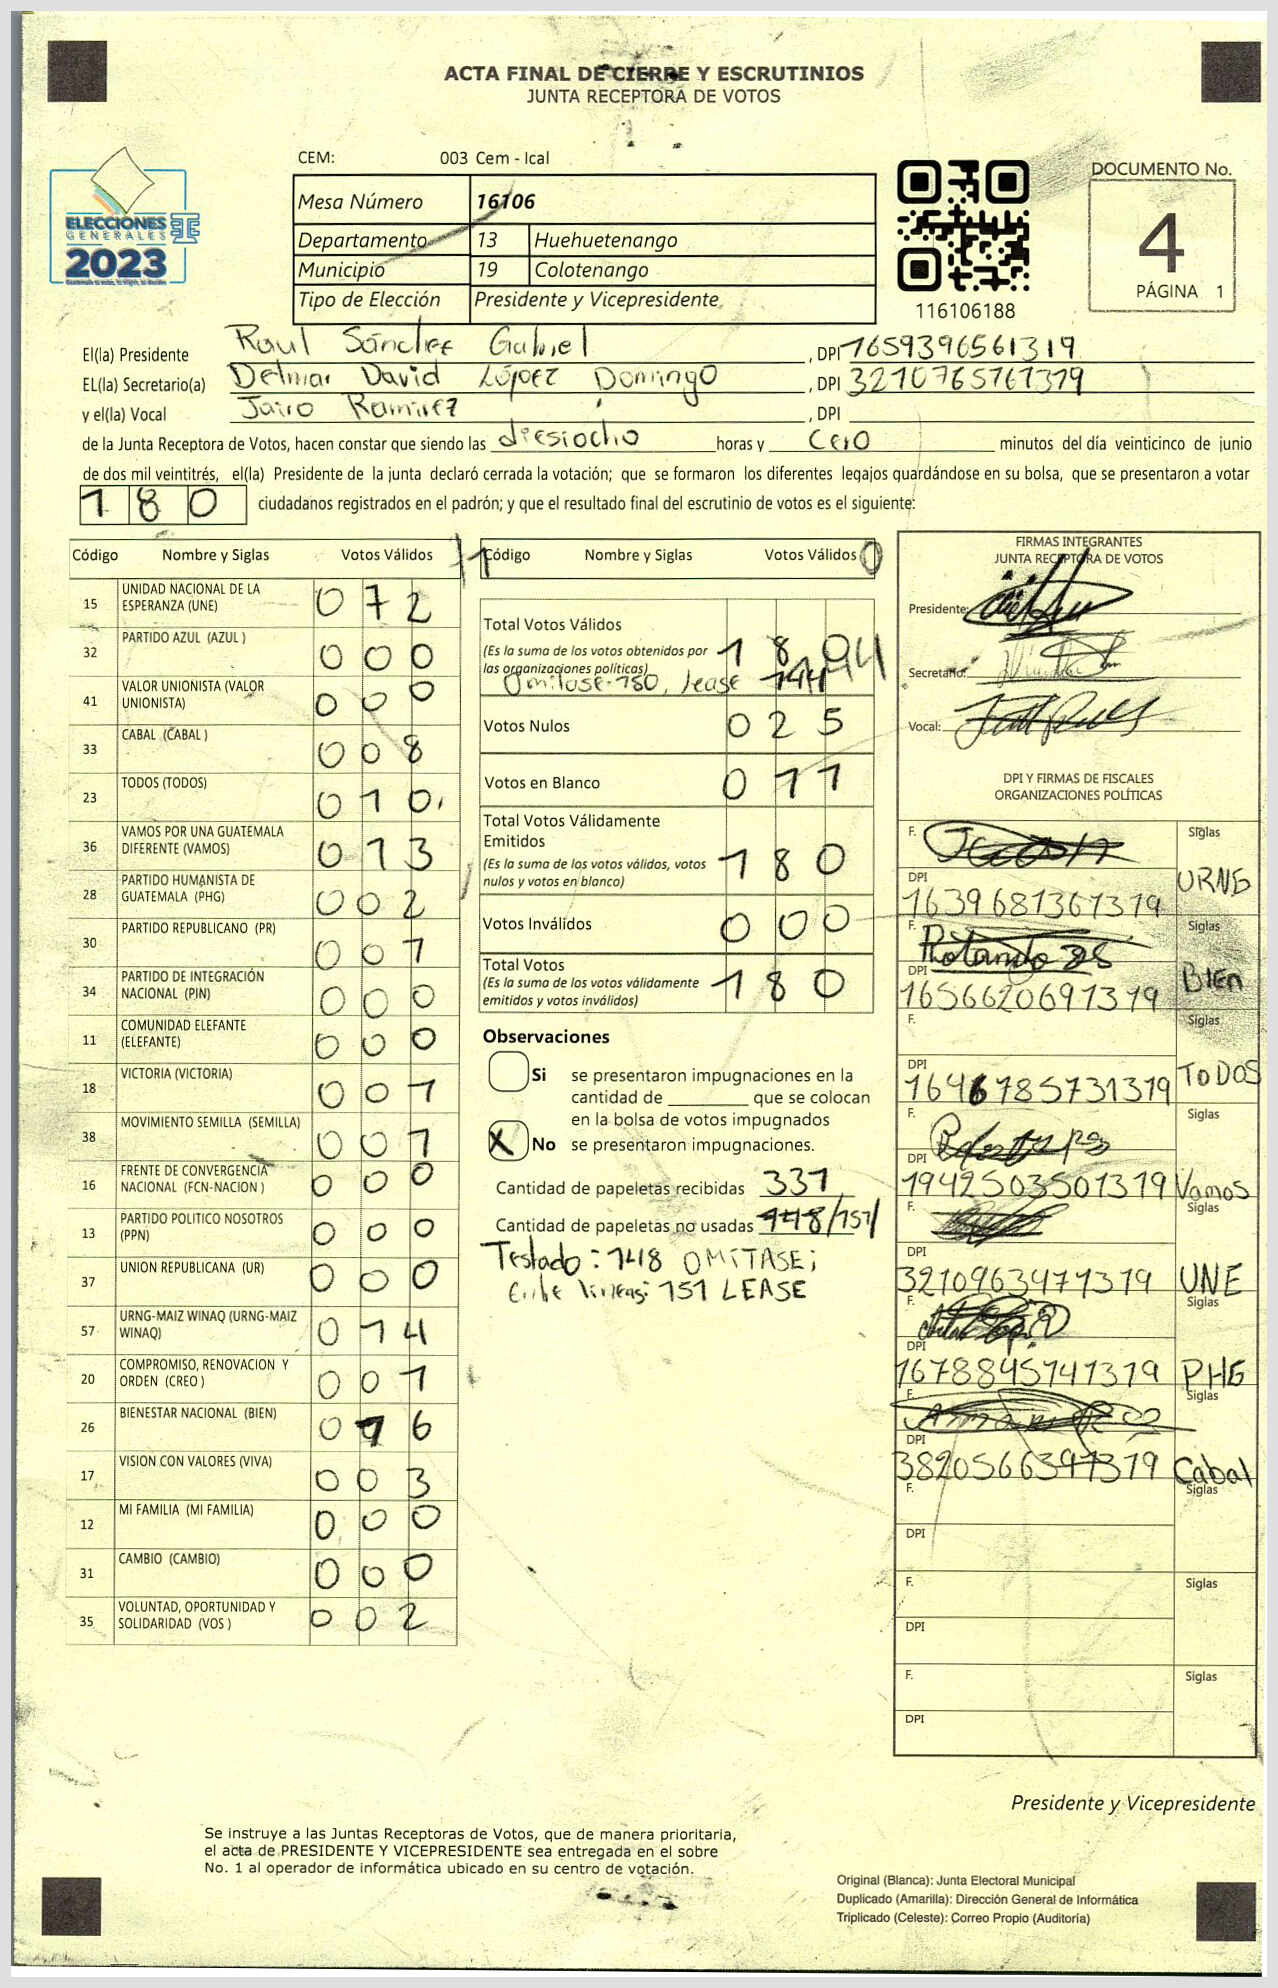 ACTA FINAL DE CIERRE Y ESCRUTINIOS
JUNTA RECEPTORA DE VOTOS
CEM: 003 Cem - Ical
ELECCIONES
GENERALES
2023
Mesa Número 16106
Departamento 13 Huehuetenango
Municipio 19 Colotenango
Tipo de Elección Presidente y Vicepresidente
116106188
DOCUMENTO No.
4
PÁGINA 1
El(la) Presidente Raul Sánchez Gabriel , DPI 1659396561319
EL(la) Secretario(a) Delmar David López Domingo , DPI 3210765761319
y el(la) Vocal Jairo Ramirez , DPI
de la Junta Receptora de Votos, hacen constar que siendo las diesiocho horas y cero minutos del día veinticinco de junio
de dos mil veintitrés, el(la) Presidente de la junta declaró cerrada la votación; que se formaron los diferentes legajos guardándose en su bolsa, que se presentaron a votar
180 ciudadanos registrados en el padrón; y que el resultado final del escrutinio de votos es el siguiente:
Código Nombre y Siglas Votos Válidos
15 UNIDAD NACIONAL DE LA ESPERANZA (UNE) 072
32 PARTIDO AZUL (AZUL ) 000
41 VALOR UNIONISTA (VALOR UNIONISTA) 000
33 CABAL (CABAL ) 008
23 TODOS (TODOS) 010
36 VAMOS POR UNA GUATEMALA DIFERENTE (VAMOS) 013
28 PARTIDO HUMANISTA DE GUATEMALA (PHG) 002
30 PARTIDO REPUBLICANO (PR) 001
34 PARTIDO DE INTEGRACIÓN NACIONAL (PIN) 000
11 COMUNIDAD ELEFANTE (ELEFANTE) 000
18 VICTORIA (VICTORIA) 001
38 MOVIMIENTO SEMILLA (SEMILLA) 001
16 FRENTE DE CONVERGENCIA NACIONAL (FCN-NACION ) 000
13 PARTIDO POLITICO NOSOTROS (PPN) 000
37 UNION REPUBLICANA (UR) 000
57 URNG-MAIZ WINAQ (URNG-MAIZ WINAQ) 014
20 COMPROMISO, RENOVACION Y ORDEN (CREO ) 001
26 BIENESTAR NACIONAL (BIEN) 016
17 VISION CON VALORES (VIVA) 003
12 MI FAMILIA (MI FAMILIA) 000
31 CAMBIO (CAMBIO) 000
35 VOLUNTAD, OPORTUNIDAD Y SOLIDARIDAD (VOS ) 002
Código Nombre y Siglas Votos Válidos
Total Votos Válidos
(Es la suma de los votos obtenidos por
las organizaciones políticas)
180 144
Omitase-180, Lease 144
Votos Nulos 025
Votos en Blanco 011
Total Votos Válidamente
Emitidos
(Es la suma de los votos válidos, votos
nulos y votos en blanco) 180
Votos Inválidos 000
Total Votos
(Es la suma de los votos válidamente
emitidos y votos inválidos) 180
Observaciones
Si se presentaron impugnaciones en la
cantidad de ________ que se colocan
en la bolsa de votos impugnados
X No se presentaron impugnaciones.
Cantidad de papeletas recibidas 331
Cantidad de papeletas no usadas 148/151/
Testado: 148 OMITASE;
Entre lineas: 151 LEASE
FIRMAS INTEGRANTES
JUNTA RECEPTORA DE VOTOS
Presidente:
Secretario:
Vocal:
DPI Y FIRMAS DE FISCALES
ORGANIZACIONES POLÍTICAS
F. Siglas
DPI 1639681361319 URNG
F. Siglas
DPI 1656620691319 Bien
F. Siglas
DPI 1646785731319 TODOS
F. Siglas
DPI 1942503501319 Vamos
F. Siglas
DPI 3210963471319 UNE
F. Siglas
DPI 1678845741319 PHG
F. Siglas
DPI 3820566391319 Cabal
F. Siglas
DPI
F. Siglas
DPI
F. Siglas
DPI
Presidente y Vicepresidente
Se instruye a las Juntas Receptoras de Votos, que de manera prioritaria,
el acta de PRESIDENTE Y VICEPRESIDENTE sea entregada en el sobre
No. 1 al operador de informática ubicado en su centro de votación.
Original (Blanca): Junta Electoral Municipal
Duplicado (Amarilla): Dirección General de Informática
Triplicado (Celeste): Correo Propio (Auditoría)